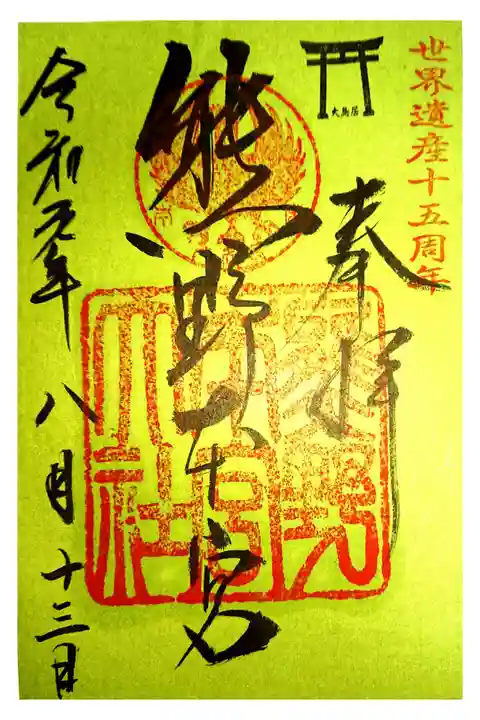 世界遺産十五周年
大鳥居
奉拝
熊野本宮
熊野本宮大社
令和元年八月十三日